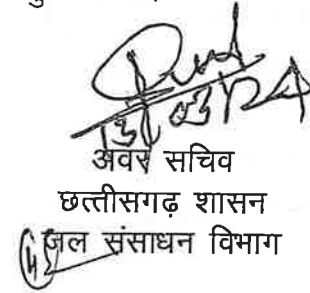 13/03/24
अवर सचिव
छत्तीसगढ़ शासन
जल संसाधन विभाग